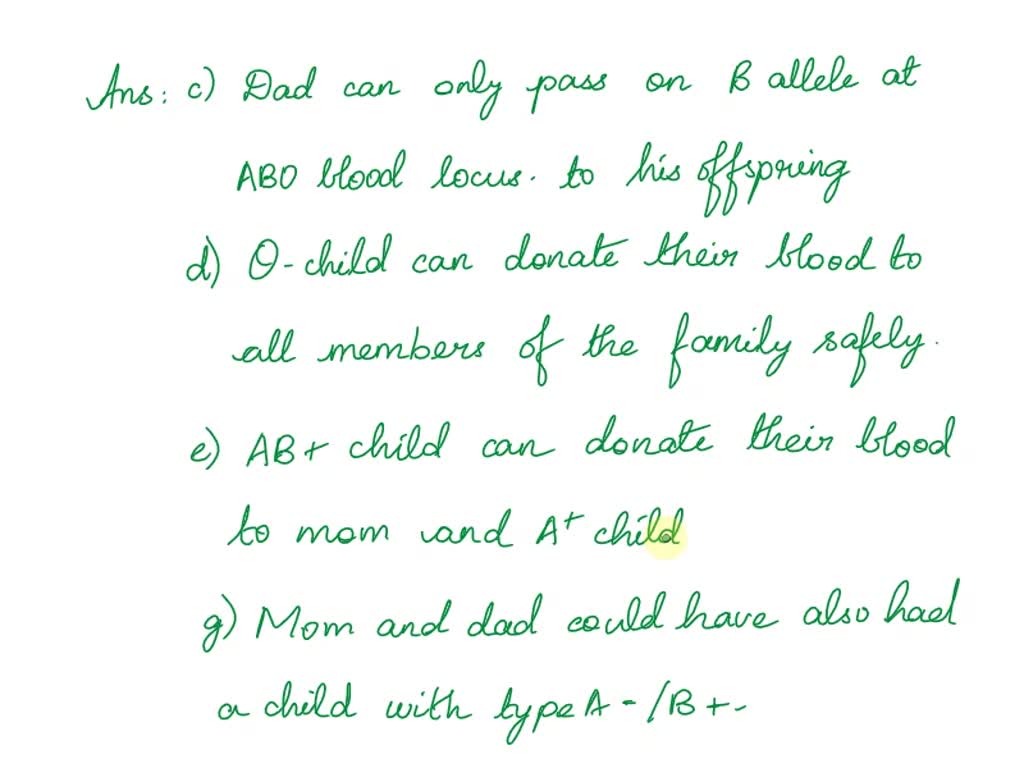 Ans: c) Dad can only pass on B allele at
ABO blood locus. to his offspring
d) O-child can donate their blood to
all members of the family safely.
e) AB+ child can donate their blood
to mom and A+ child
g) Mom and dad could have also had
a child with type A - / B + -